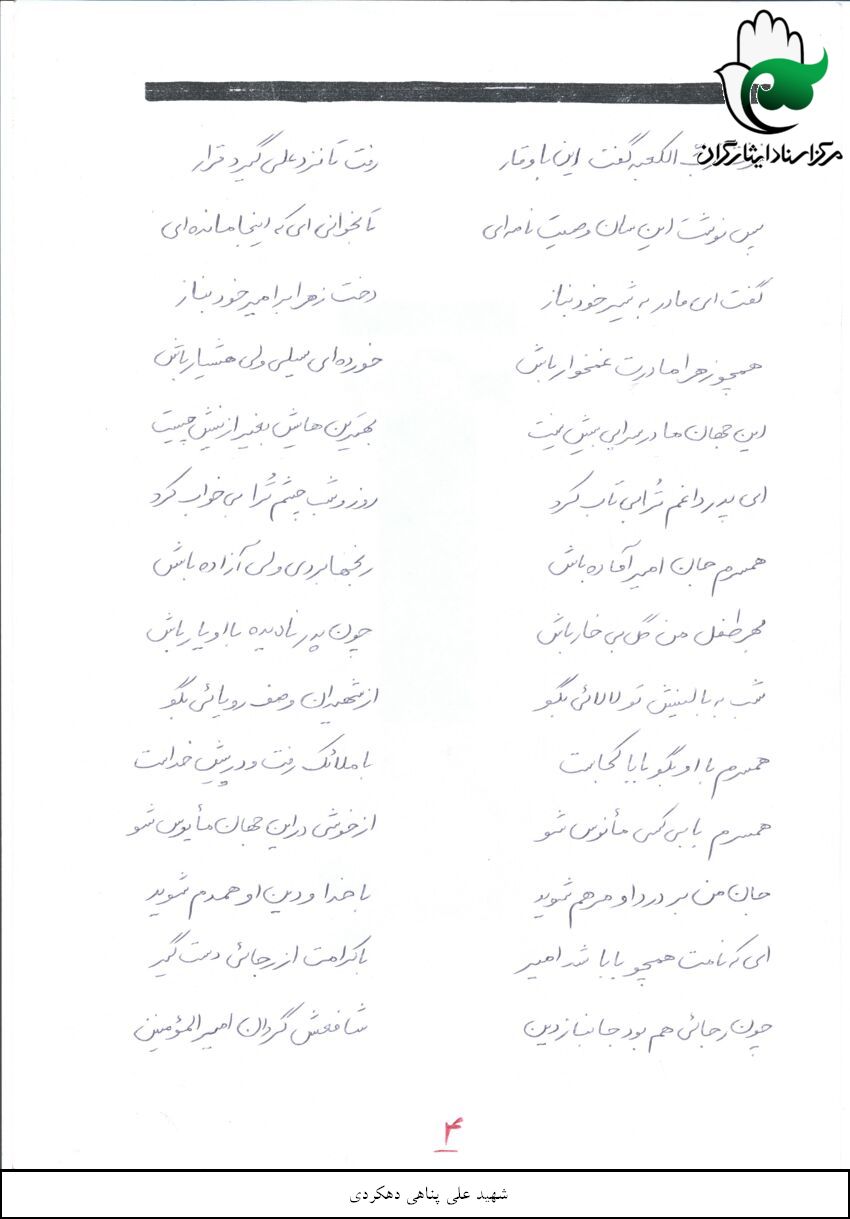 مرکز اسناد ایثارگران
الکعبه گفت این با وقار رفت تا نزد علی گیرد قرار
پس نوشت این سان وصیت نامه‌ای تا بخوانی ای که اینجا مانده‌ای
گفت ای مادر به شیر خود بناز دخت زهرا بر امیر خود بناز
همچو زهرا مادرت غمخوار باش خورده‌ای سیلی ولی هشیار باش
این جهان ما در سرایی بیش نیست بهترین هایش بغیر از نیش چیست
ای پدر داغم تُرا بی تاب کرد روز و شب چشم تُرا بی خواب کرد
همسرم جان امیر آماده باش رنجها بردی ولی آزاده باش
بهر طفل من گل بی خار باش چون پدر نادیده با او یار باش
شب به بالینش تو لالائی بگو از شهیدان وصف رویائی بگو
همسرم با او بگو بابا کجاست با ملائک رفت و در پیش خداست
همسرم با بی کسی مأنوس شو از خوشی در این جهان مأیوس شو
جان من بر درد او مرهم شوید با خدا و دین او همدم شوید
ای که نامت همچو بابا شد امیر با کرامت از رجائی دست گیر
چون رجائی هم بود جانباز دین شافعش گردان امیرالمؤمنین
۴
شهید علی پناهی دهکردی